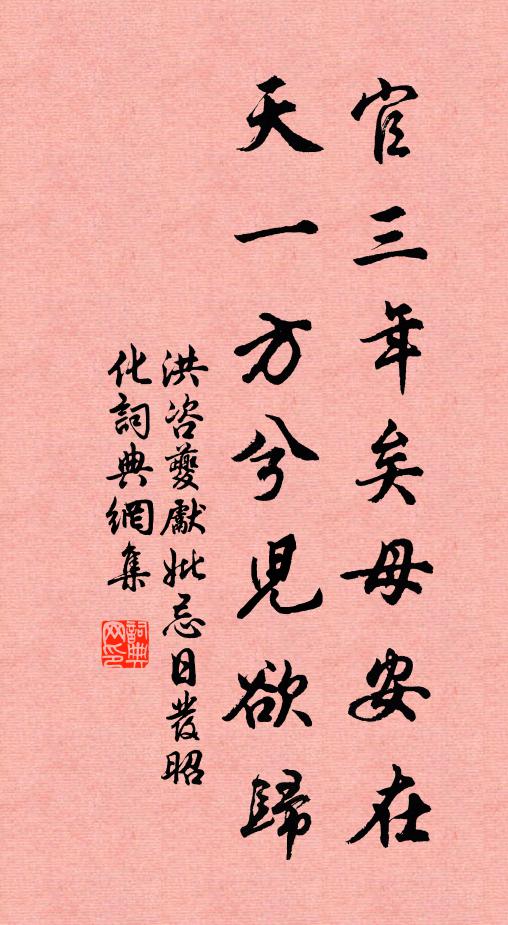 官三年矣母安在
天一方兮兒欲歸
洪咨夔獻妣忌日發昭
化詞典網集
詞典網印